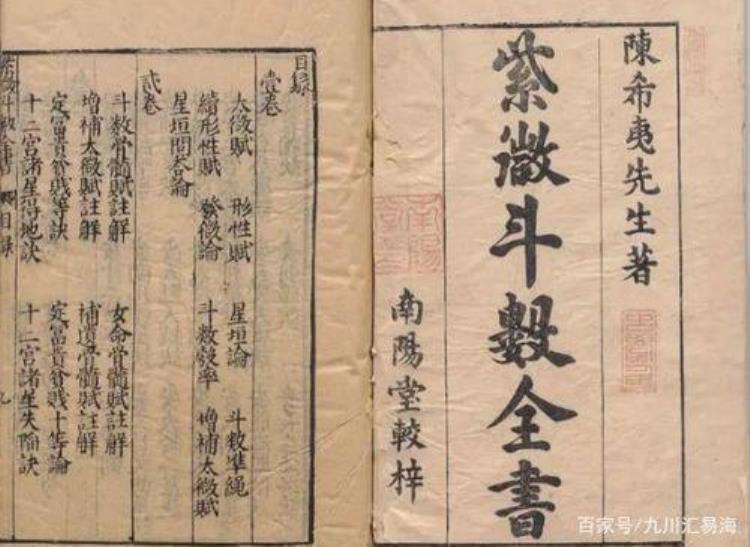 陳希夷先生著
紫微斗數全書
南陽堂較梓
南陽
堂
目錄
壹卷
太微賦 形性賦 星垣論 斗數準繩
續形性賦 發微論 斗數彀率 增補太微賦
星垣問答論
貳卷
斗數骨髓賦註解 女命骨髓賦註解
增補太微賦註解 補遺骨髓賦註解
定富貴貧賤等訣 定富貴貧賤十等論
十二宮諸星得地訣 十二宮諸星失陷訣
斗數全書 目錄
百家号/九川汇易海